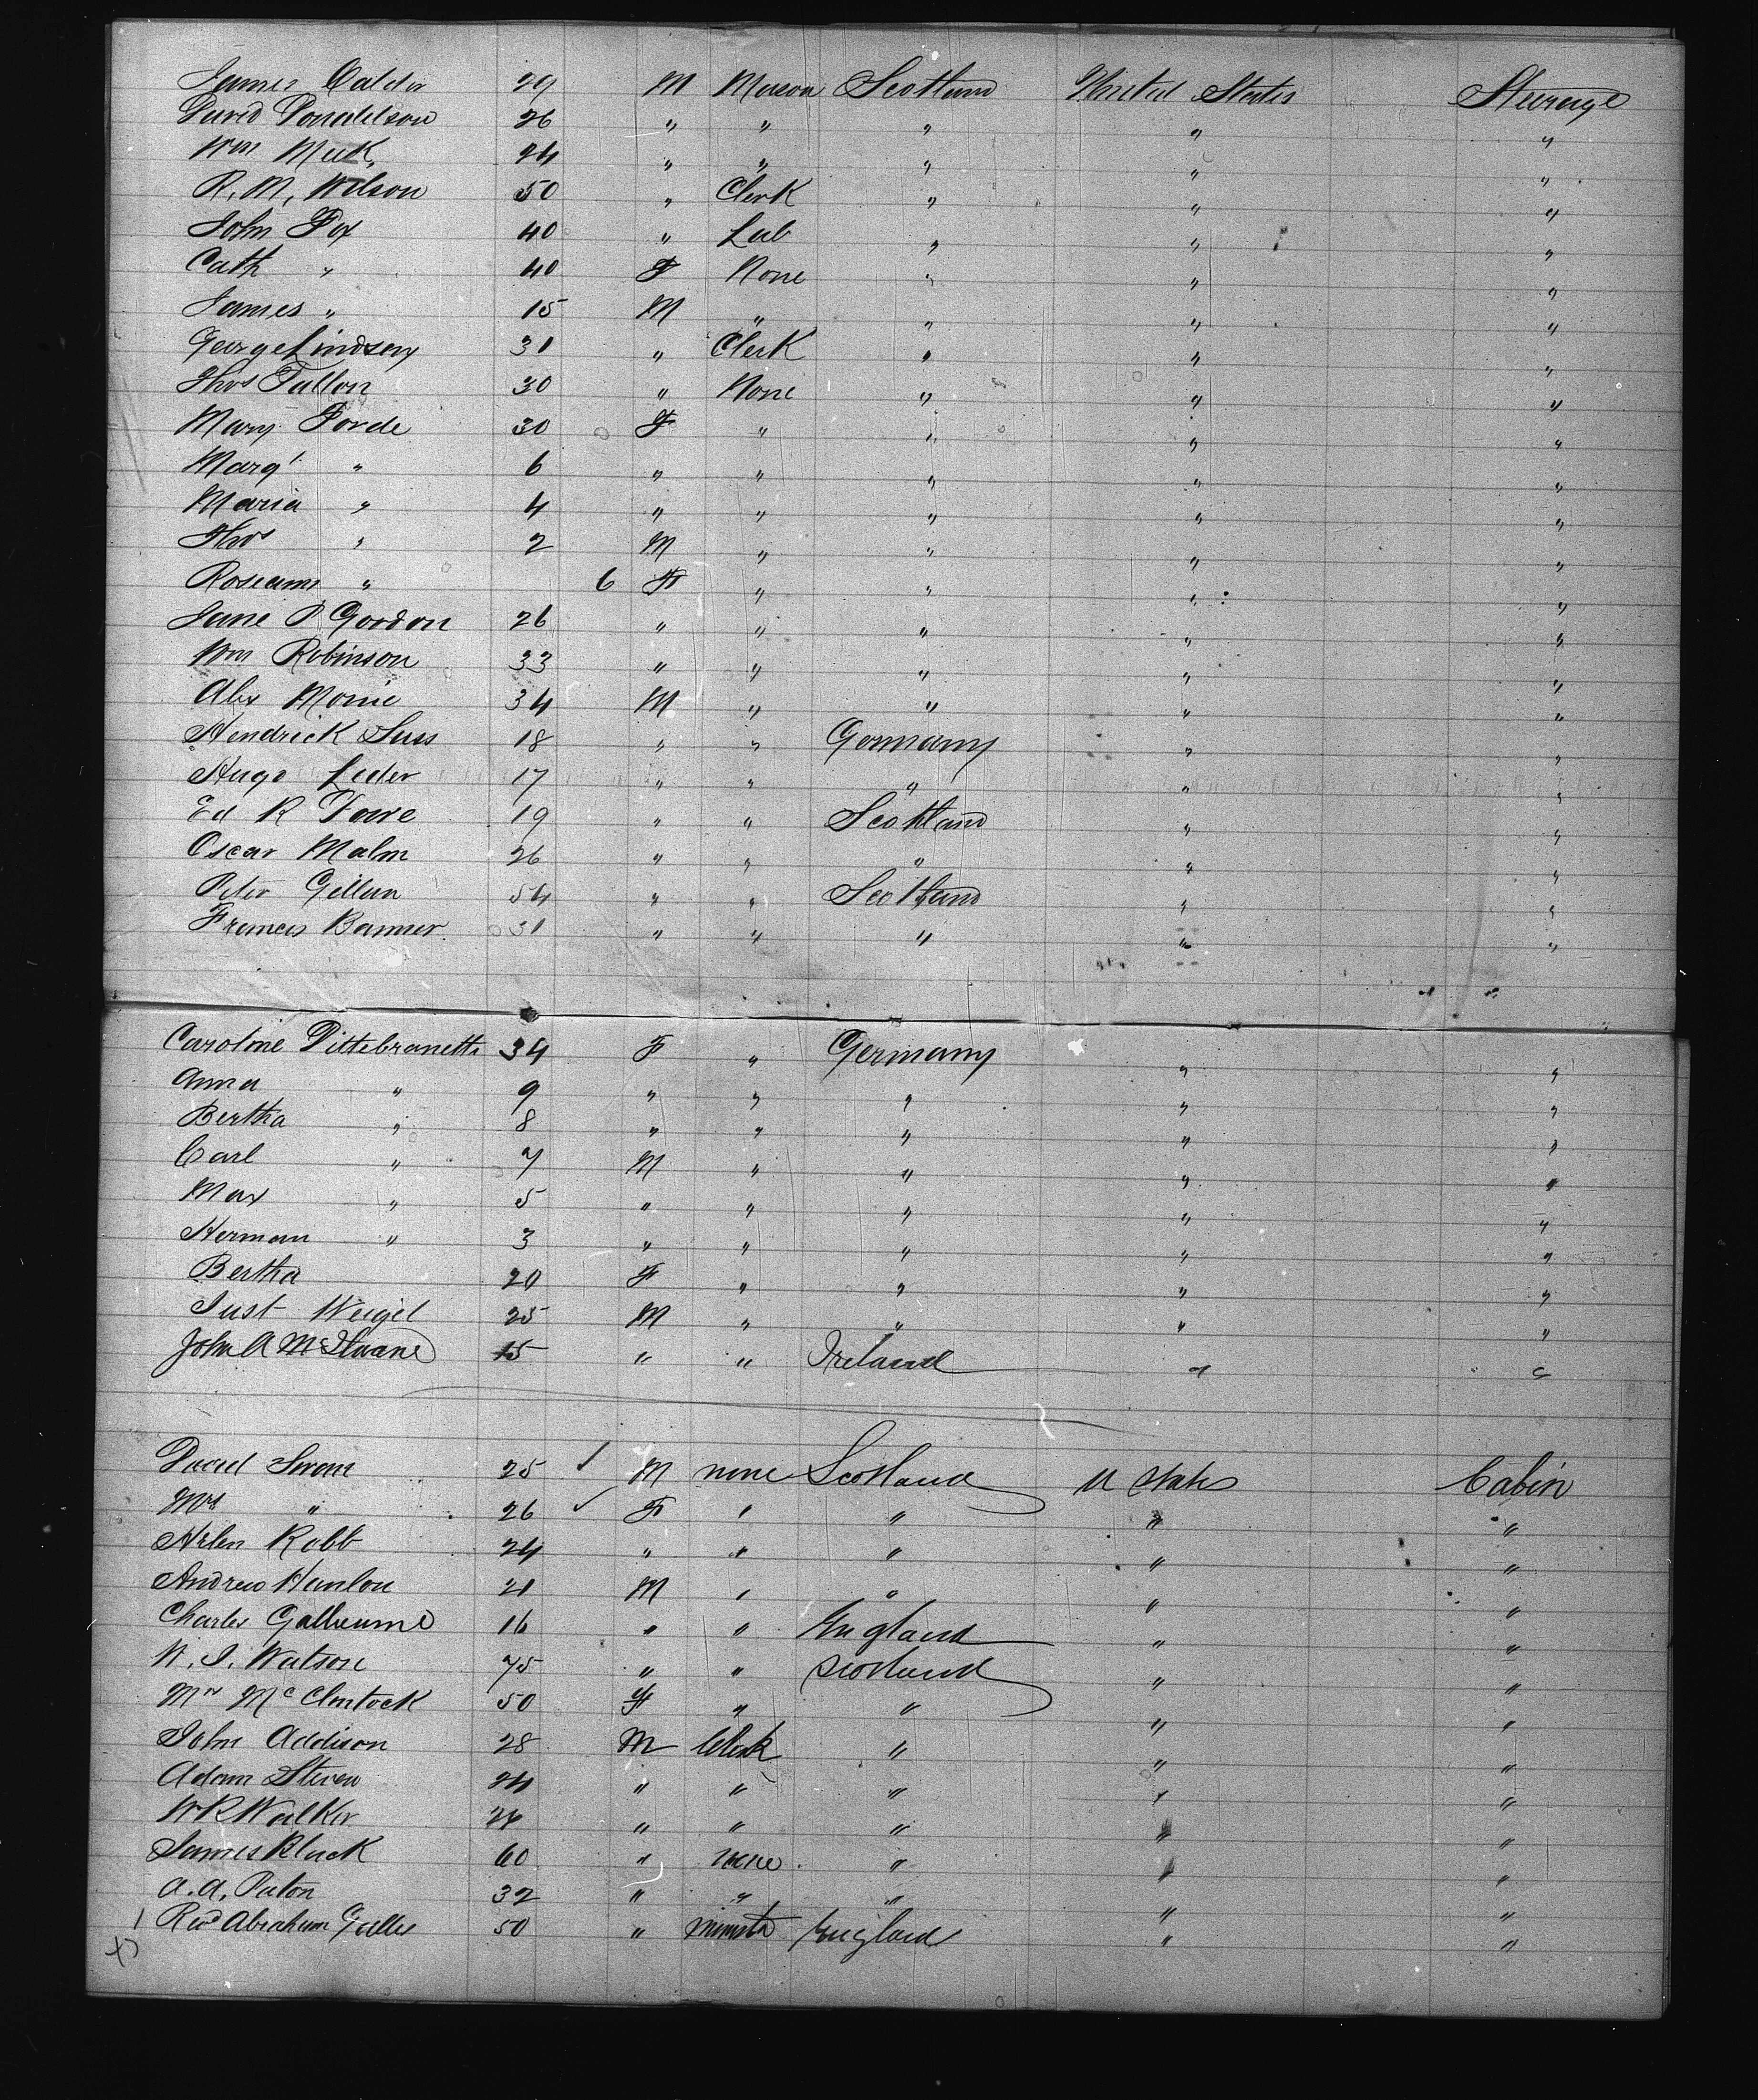 James Calder 29 M Mason Scotland United States Steerage
David Donaldson 26 " " " " "
Wm Meek 24 " " " " "
R. M. Wilson 50 " Clerk " " "
John Fox 40 " Lab " " "
Cath " 40 F None " " "
James " 15 M " " " "
George Lindsay 31 " Clerk " " "
Thos Fallon 30 " None " " "
Mary Forde 30 F " " " "
Margt " 6 " " " " "
Maria " 4 " " " " "
Thos " 2 M " " " "
Roseann " 6 F " " " "
Jane P Gordon 26 " " " " "
Wm Robinson 33 " " " " "
Alex Morrie 34 M " " " "
Hendrick Suss 18 " " Germany " "
Hugo Leder 17 " " " " "
Ed R 19 " " Scotland " "
Oscar Malm 26 " " " " "
Peter Gillan 54 " " Scotland " "
Frances Banner 31 " " " " "
Caroline Pittebranetti 34 F " Germany " "
Anna " 9 " " " " "
Bertha " 8 " " " " "
Carl " 7 M " " " "
Max " 5 " " " " "
Herman " 3 " " " " "
Bertha 20 F " " " "
Just Weigel 25 M " " " "
John A McIlwane 15 " " Ireland " "
David Swan 25 M none Scotland U States Cabin
Mrs " 26 F " " " "
Helen Robb 24 " " " " "
Andrew Hanlon 21 M " " " "
Charles 16 " " England " "
W. J. Watson 75 " " Scotland " "
Mrs McClintock 50 F " " " "
John Addison 28 M Clerk " " "
Adam Steven 24 " " " " "
W R Walker 24 " " " " "
James Black 60 " none " " "
A. A. Paton 32 " " " " "
1 Revd Abraham 50 " minister England " "